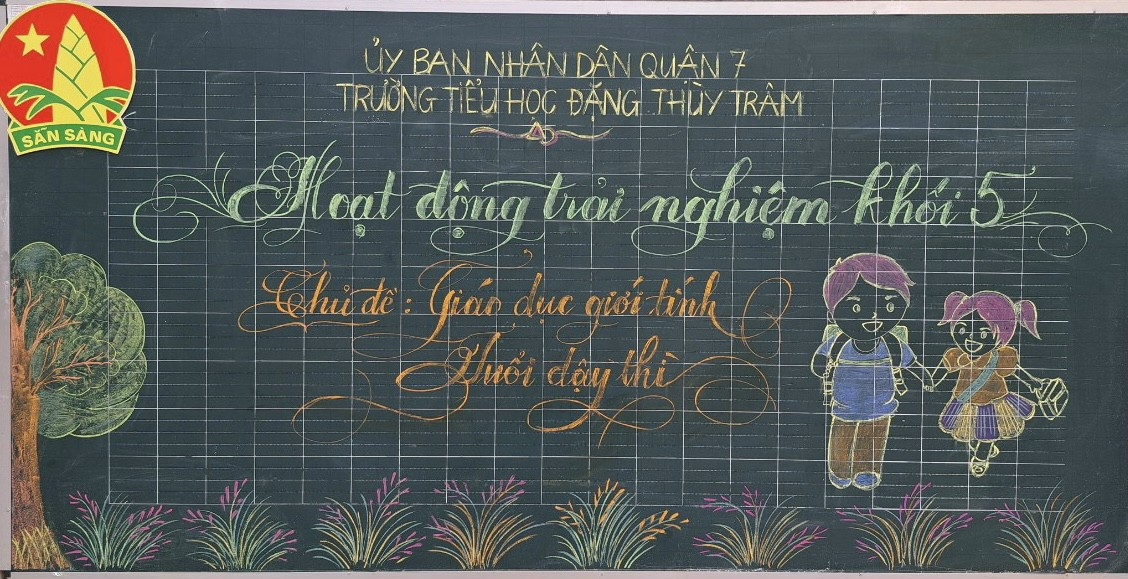 SẴN SÀNG
ỦY BAN NHÂN DÂN QUẬN 7
TRƯỜNG TIỂU HỌC ĐẶNG THÙY TRÂM
Hoạt động trải nghiệm khối 5
Chủ đề : Giáo dục giới tính
Tuổi dậy thì